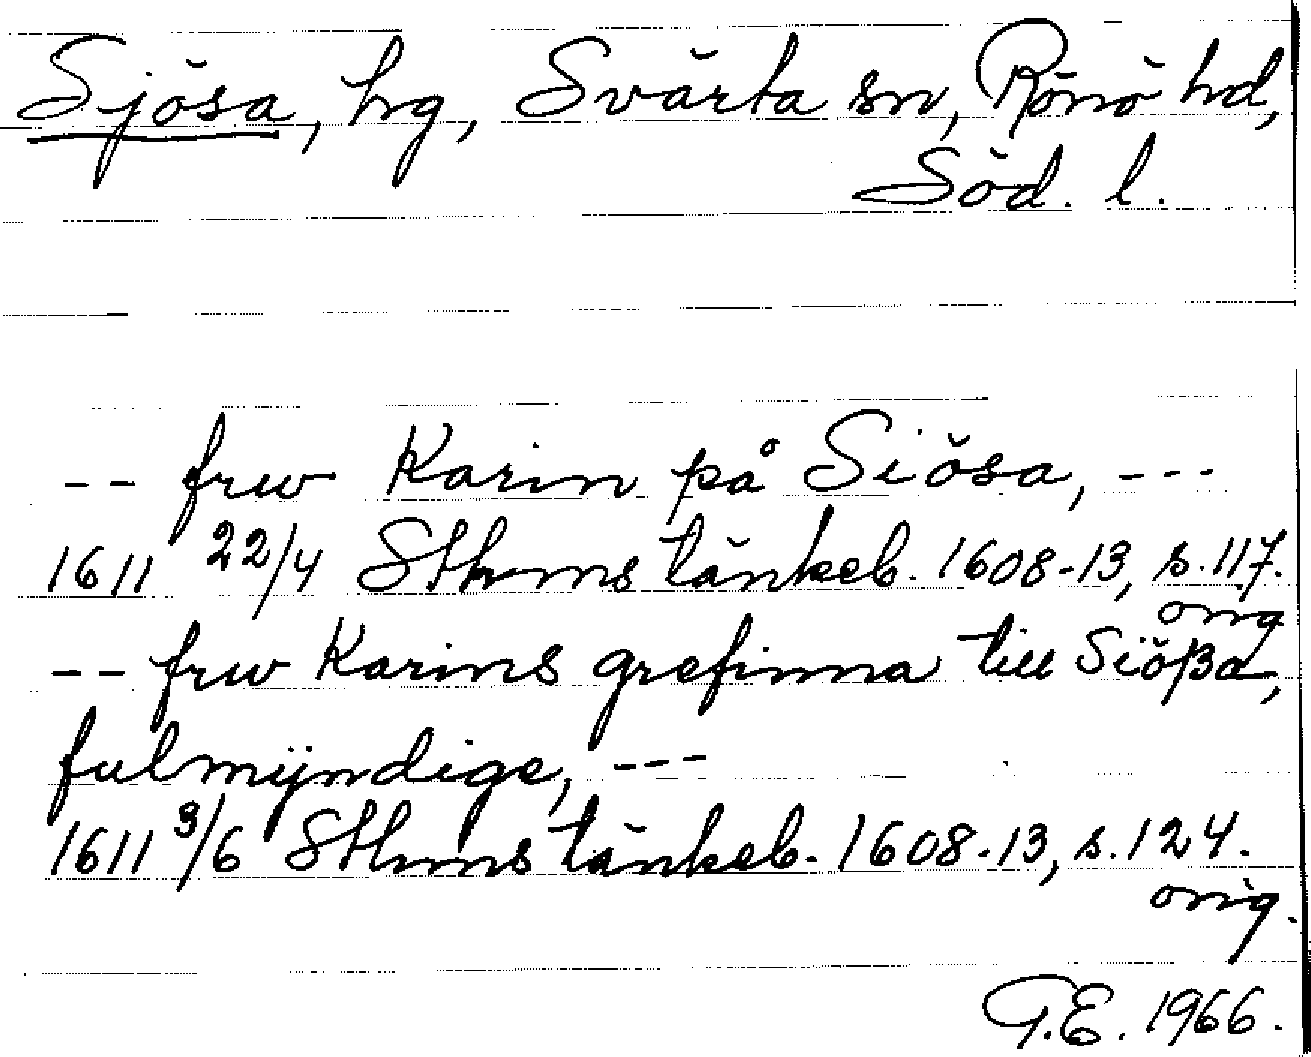 Sjösa, hg, Svärta sn, Rönö hd,
Söd. l.
-- frw Karin på Siösa, ---
1611 22/4 Sthms tänkeb. 1608-13, s. 117.
orig
-- frw Karins grefinna till Siößa,
fulmÿndige, ---
1611 3/6 Sthms tänkeb. 1608-13, s. 124.
orig.
G.E. 1966.